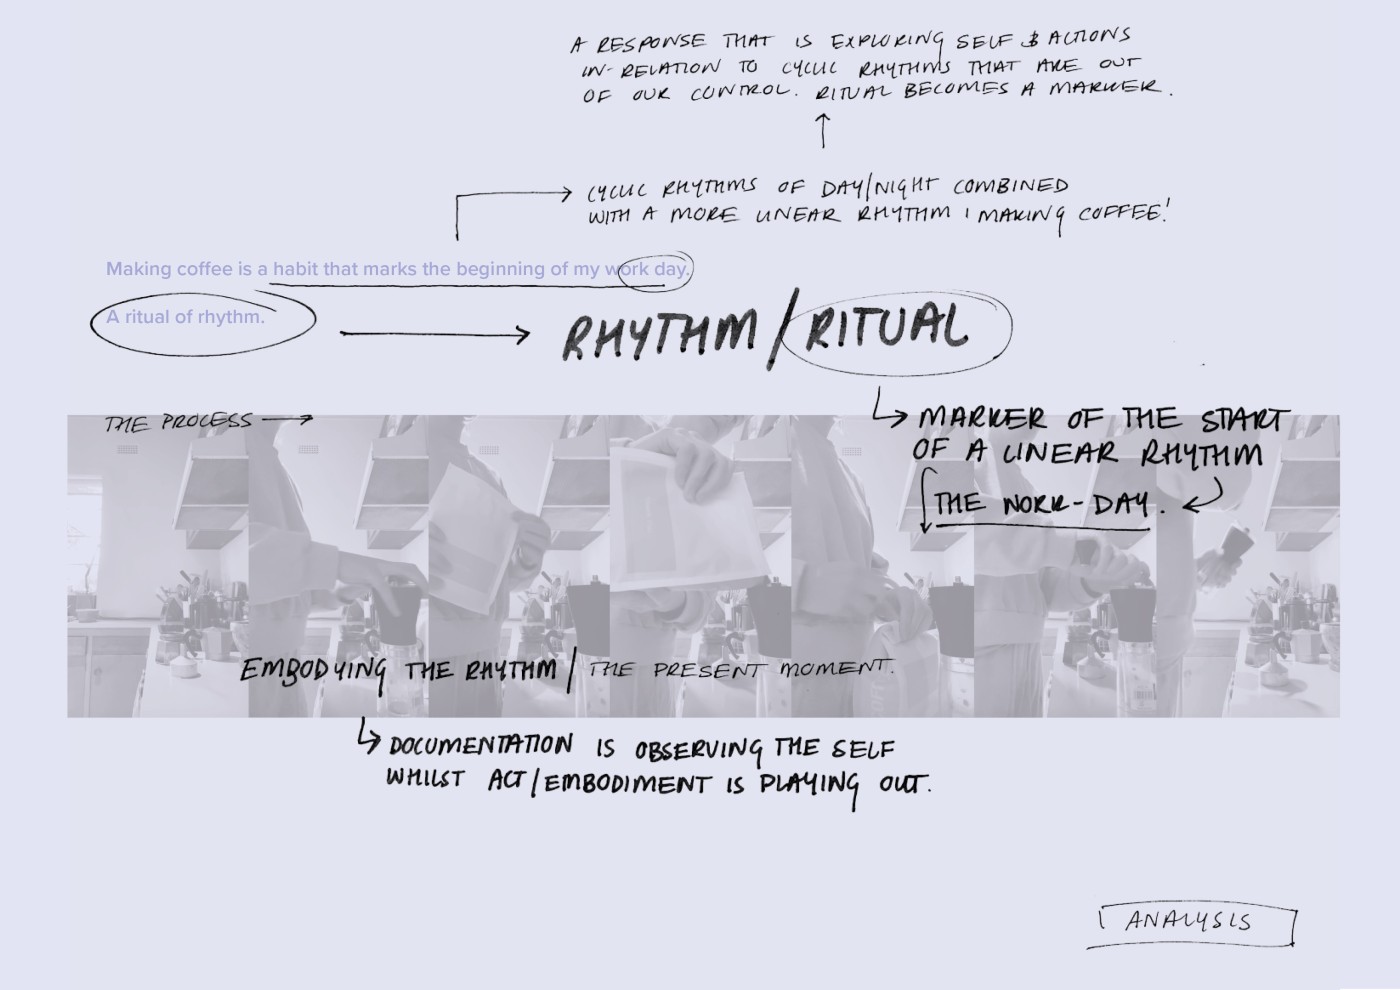 A RESPONSE THAT IS EXPLORING SELF & ACTIONS
IN-RELATION TO CYCLIC RHYTHMS THAT ARE OUT
OF OUR CONTROL. RITUAL BECOMES A MARKER.
CYCLIC RHYTHMS OF DAY/NIGHT COMBINED
WITH A MORE LINEAR RHYTHM, MAKING COFFEE!
Making coffee is a habit that marks the beginning of my work day.
A ritual of rhythm.
RHYTHM/RITUAL
THE PROCESS
MARKER OF THE START
OF A LINEAR RHYTHM
THE WORK-DAY.
EMBODYING THE RHYTHM/THE PRESENT MOMENT.
DOCUMENTATION IS OBSERVING THE SELF
WHILST ACT/EMBODIMENT IS PLAYING OUT.
ANALYSIS